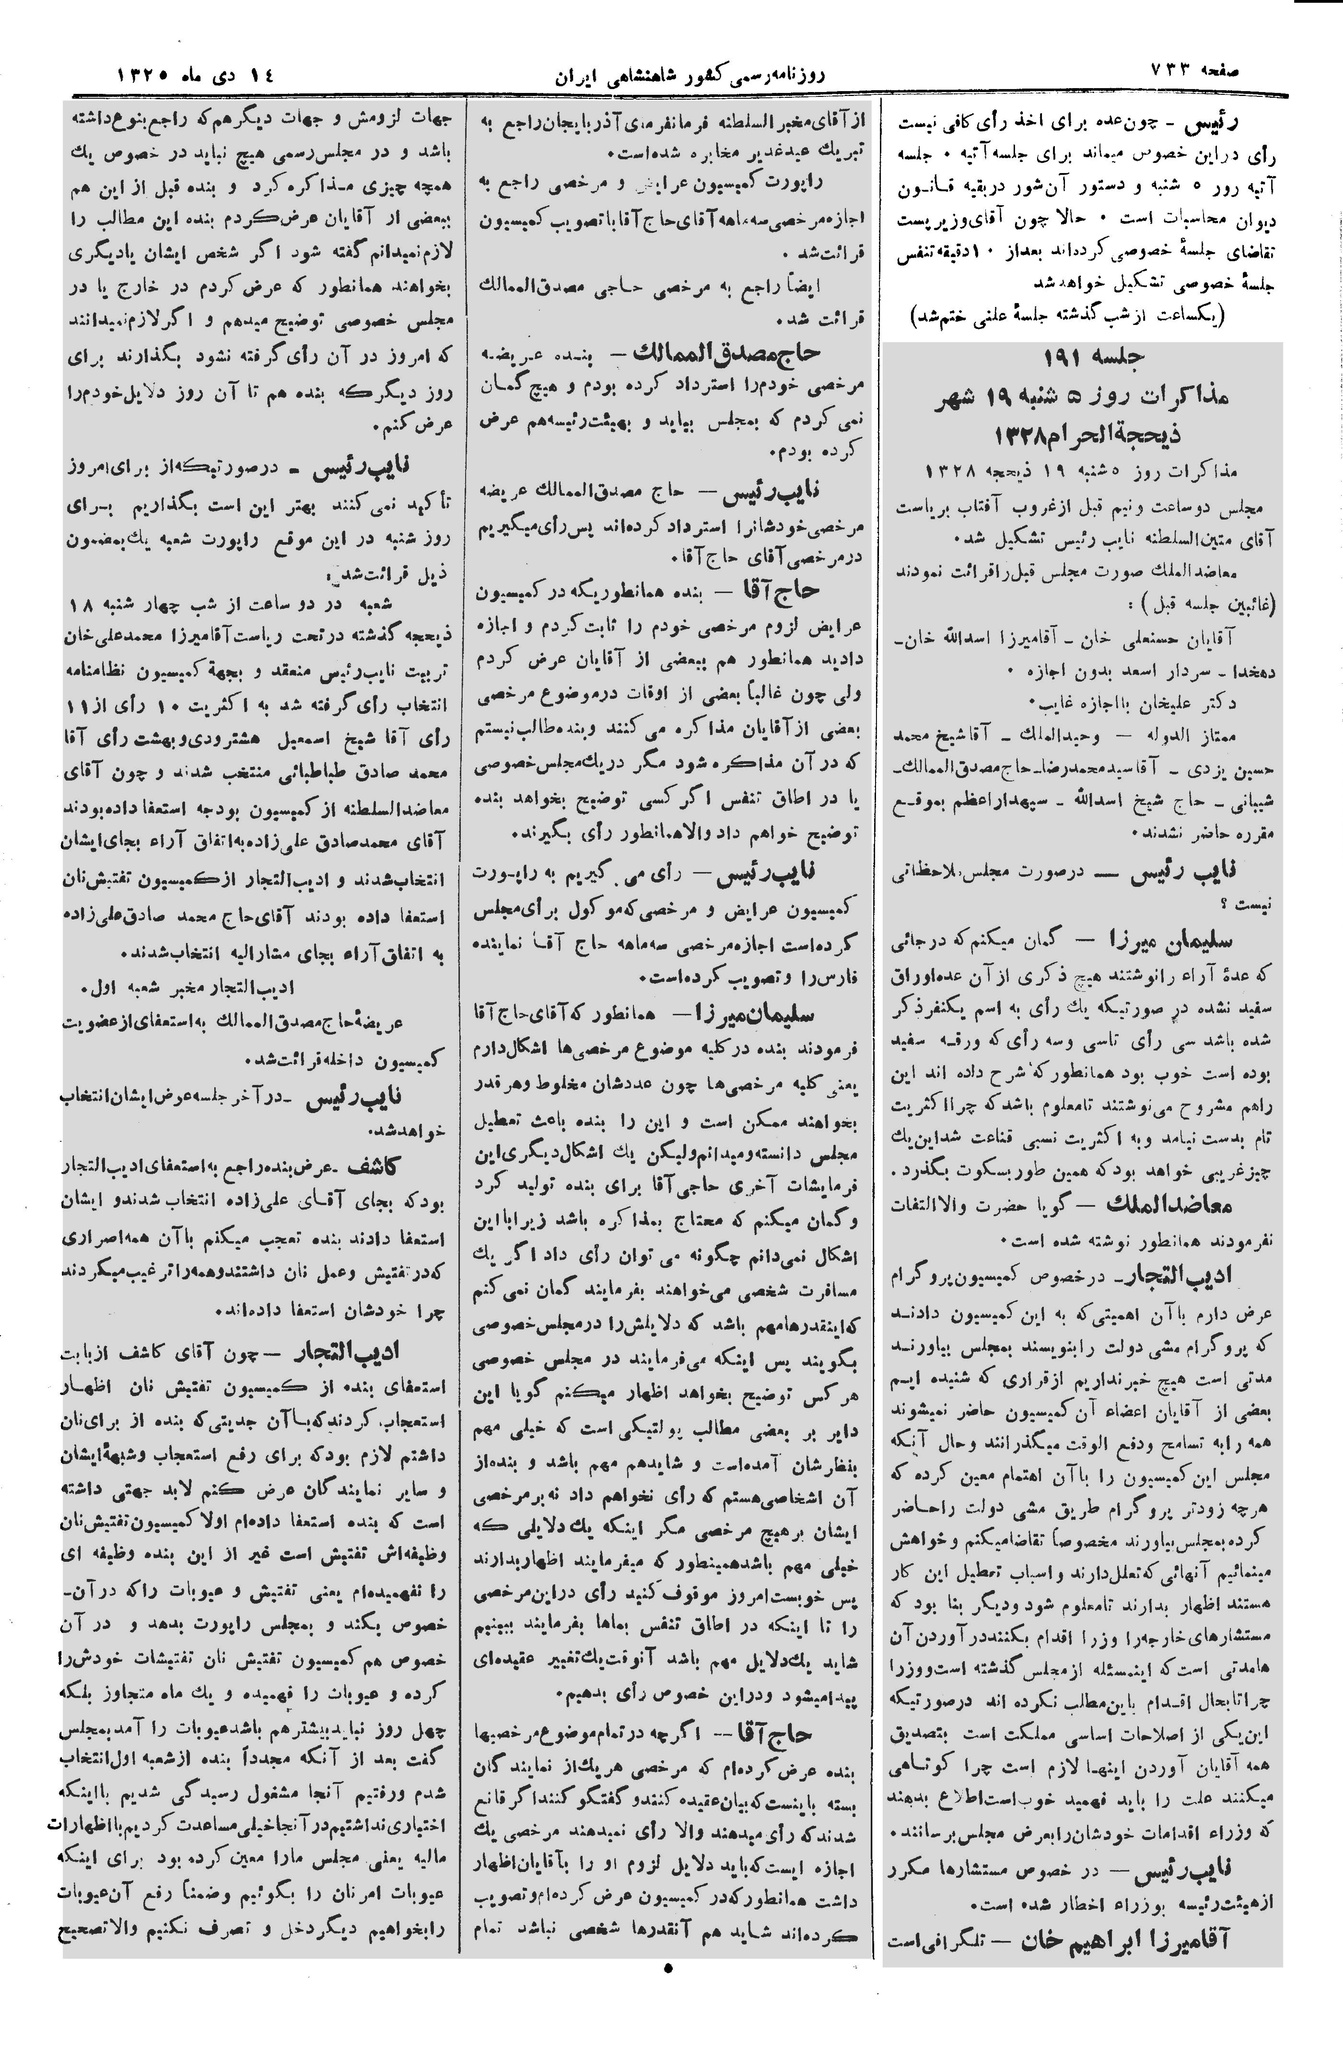 صفحه ۷۳۳
روزنامه رسمی کشور شاهنشاهی ایران
۱۴ دی ماه ۱۳۲۵
رئیس ـ چون عده برای اخذ رأی کافی نیست
رأی دراین خصوص میماند برای جلسه آتیه ۰ جلسه
آتیه روز ۵ شنبه و دستور آن شور دربقیه قانون
دیوان محاسبات است ۰ حالا چون آقای وزیر پست
تقاضای جلسهٔ خصوصی کرده‌اند بعداز ۱۰ دقیقه تنفس
جلسهٔ خصوصی تشکیل خواهد شد
(یکساعت از شب گذشته جلسهٔ علنی ختم شد)
جلسه ۱۹۱
مذاکرات روز ۵ شنبه ۱۹ شهر
ذیحجة الحرام ۱۳۲۸
مذاکرات روز ۵ شنبه ۱۹ ذیحجه ۱۳۲۸
مجلس دو ساعت و نیم قبل از غروب آفتاب بریاست
آقای متین السلطنه نایب رئیس تشکیل شد۰
معاضد الملک صورت مجلس قبل را قرائت نمودند
(غائبین جلسه قبل) :
آقایان حسنعلی خان ـ آقامیرزا اسدالله خان ـ
دهخدا ـ سردار اسعد بدون اجازه ۰
دکتر علیخان با اجازه غایب۰
ممتاز الدوله — وحید الملک ـ آقا شیخ محمد
حسین یزدی ـ آقا سید محمد رضا ـ حاج مصدق الممالک ـ
شیبانی ـ حاج شیخ اسدالله ـ سپهدار اعظم بموقع
مقرره حاضر نشدند۰
نایب رئیس — درصورت مجلس ملاحظاتی
نیست ؟
سلیمان میرزا — گمان میکنم که در جائی
که عدهٔ آراء رانوشتند هیچ ذکری از آن عده اوراق
سفید نشده در صورتیکه یك رأی به اسم یکنفر ذکر
شده باشد سی رأی تاسی وسه رأی که ورقه سفید
بوده است خوب بود همانطور که شرح داده اند این
راهم مشروح می‌نوشتند تامعلوم باشد که چرا اکثریت
تام بدست نیامد و به اکثریت نسبی قناعت شد این یك
چیز غریبی خواهد بود که همین طور بسکوت بگذرد .
معاضد الملک — گویا حضرت والا التفات
نفرمودند همانطور نوشته شده است۰
ادیب التجار ـ درخصوص کمیسیون پروگرام
عرض دارم با آن اهمیتی که به این کمیسیون دادند
که پروگرام مشی دولت را بنویسند بمجلس بیاورند
مدتی است هیچ خبر نداریم از قراری که شنیده ایم
بعضی از آقایان اعضاء آن کمیسیون حاضر نمیشوند
همه را به تسامح و دفع الوقت میگذرانند وحال آنکه
مجلس این کمیسیون را با آن اهتمام معین کرده که
هرچه زودتر پروگرام طریق مشی دولت را حاضر
کرده بمجلس بیاورند مخصوصاً تقاضا میکنم و خواهش
مینمائیم آنهائی که تعلل دارند و اسباب تعطیل این کار
هستند اظهار بدارند تامعلوم شود و دیگر بنا بود که
مستشارهای خارجه را وزرا اقدام بکنند درآوردن آن
هامدتی است که اینمسئله ازمجلس گذشته است و وزرا
چرا تابحال اقدام باین مطلب نکرده اند درصورتیکه
این یکی از اصلاحات اساسی مملکت است بتصدیق
همه آقایان آوردن اینها لازم است چرا کوتاهی
میکنند علت را باید فهمید خوب است اطلاع بدهند
که وزراء اقدامات خودشان را بعرض مجلس برسانند۰
نایب رئیس — در خصوص مستشارها مکرر
از هیئت رئیسه بوزراء اخطار شده است۰
آقا میرزا ابراهیم خان — تلگرافی است
از آقای مخبر السلطنه فرمانفرمای آذربایجان راجع به
تبریك عید غدیر مخابره شده است۰
راپورت کمیسیون عرایض و مرخصی راجع به
اجازه مرخصی سه ماهه آقای حاج آقا با تصویب کمیسیون
قرائت شد ۰
ایضاً راجع به مرخصی حاجی مصدق الممالك
قرائت شد.
حاج مصدق الممالك — بنده عریضه
مرخصی خودم را استرداد کرده بودم و هیچ گمان
نمی کردم که بمجلس بیاید و بهیئت رئیسه هم عرض
کرده بودم.
نایب رئیس — حاج مصدق الممالك عریضه
مرخصی خودشانرا استرداد کرده‌اند پس رأی میگیریم
درمرخصی آقای حاج آقا.
حاج آقا — بنده همانطوریکه در کمیسیون
عرایض لزوم مرخصی خودم را ثابت کردم و اجازه
دادید همانطور هم ببعضی از آقایان عرض کردم
ولی چون غالباً بعضی از اوقات درموضوع مرخصی
بعضی از آقایان مذاکره می کنند و بنده طالب نیستم
که در آن مذاکره شود مگر دریك مجلس خصوصی
یا در اطاق تنفس اگر کسی توضیح بخواهد بنده
توضیح خواهم داد والا همانطور رأی بگیرند.
نایب رئیس — رأی می گیریم به راپورت
کمیسیون عرایض و مرخصی که موکول برأی مجلس
کرده است اجازه مرخصی سه ماهه حاج آقا نماینده
فارس را و تصویب کرده است۰
سلیمان میرزا — همانطور که آقای حاج آقا
فرمودند بنده در کلیه موضوع مرخصی ها اشکال دارم
یعنی کلیه مرخصی‌ها چون عددشان مخلوط و هر قدر
بخواهند ممکن است و این را بنده باعث تعطیل
مجلس دانسته و میدانم ولیکن یك اشکال دیگری این
فرمایشات آخری حاجی آقا برای بنده تولید کرد
و گمان میکنم که محتاج بمذاکره باشد زیرا با این
اشکال نمی‌دانم چگونه می توان رأی داد اگر یك
مسافرت شخصی می‌خواهند بفرمایند گمان نمی کنم
که اینقدرها مهم باشد که دلایلش را در مجلس خصوصی
بگویند پس اینکه می‌فرمایند در مجلس خصوصی
هر کس توضیح بخواهد اظهار میکنم گویا این
دایر بر بعضی مطالب پولتیکی است که خیلی مهم
بنظرشان آمده است و شاید هم مهم باشد و بنده از
آن اشخاصی هستم که رأی نخواهم داد نه بر مرخصی
ایشان بر هیچ مرخصی مگر اینکه یك دلایلی که
خیلی مهم باشد همینطور که میفرمایند اظهار بدارند
پس خوبست امروز موقوف کنید رأی دراین مرخصی
را تا اینکه در اطاق تنفس بماها بفرمایند ببینیم
شاید یك دلایل مهم باشد آنوقت یك تغییر عقیده‌ای
پیدا میشود و دراین خصوص رأی بدهیم.
حاج آقا — اگرچه در تمام موضوع مرخصیها
بنده عرض کرده‌ام که مرخصی هریك از نمایندگان
بسته باینست که بیان عقیده کنند و گفتگو کنند اگر قانع
شدند که رأی میدهند والا رأی نمیدهند مرخصی یك
اجازه ایست که باید دلایل لزوم او را بآقایان اظهار
داشت همانطور که در کمیسیون عرض کرده‌ام و تصویب
کرده‌اند شاید هم آنقدرها شخصی نباشد تمام
جهات لزومش و جهات دیگر هم که راجع بنوع داشته
باشد و در مجلس رسمی هیچ نباید در خصوص یك
همچه چیزی مذاکره کرد و بنده قبل از این هم
ببعضی از آقایان عرض کردم بنده این مطالب را
لازم نمیدانم گفته شود اگر شخص ایشان یا دیگری
بخواهند همانطور که عرض کردم در خارج یا در
مجلس خصوصی توضیح میدهم و اگر لازم نمیدانند
که امروز در آن رأی گرفته نشود بگذارند برای
روز دیگر که بنده هم تا آن روز دلایل خودم را
عرض کنم.
نایب رئیس ـ درصورتیکه از برای امروز
تأکید نمی کنند بهتر این است بگذاریم برای
روز شنبه در این موقع راپورت شعبه یك بمضمون
ذیل قرائت شد:
شعبه در دو ساعت از شب چهار شنبه ۱۸
ذیحجه گذشته درتحت ریاست آقا میرزا محمد علی خان
تربیت نایب رئیس منعقد و بجهة کمیسیون نظامنامه
انتخاب رأی گرفته شد به اکثریت ۱۰ رأی از ۱۱
رأی آقا شیخ اسمعیل هشترودی و بهشت رأی آقا
محمد صادق طباطبائی منتخب شدند و چون آقای
معاضد السلطنه از کمیسیون بودجه استعفا داده بودند
آقای محمد صادق علی زاده به اتفاق آراء بجای ایشان
انتخاب شدند و ادیب التجار از کمیسیون تفتیش نان
استعفا داده بودند آقای حاج محمد صادق علی زاده
به اتفاق آراء بجای مشارالیه انتخاب شدند.
ادیب التجار مخبر شعبه اول.
عریضهٔ حاج مصدق الممالك به استعفای از عضویت
کمیسیون داخله قرائت شد.
نایب رئیس ـ درآخر جلسه عوض ایشان انتخاب
خواهد شد.
کاشف ـ عرض بنده راجع به استعفای ادیب التجار
بود که بجای آقای علی زاده انتخاب شدند و ایشان
استعفا دادند بنده تعجب میکنم با آن همه اصراری
که در تفتیش و عمل نان داشتند و همه را ترغیب میکردند
چرا خودشان استعفا داده‌اند.
ادیب التجار — چون آقای کاشف از بابت
استعفای بنده از کمیسیون تفتیش نان اظهار
استعجاب کردند که با آن جدیتی که بنده از برای نان
داشتم لازم بود که برای رفع استعجاب و شبههٔ ایشان
و سایر نمایندگان عرض کنم لابد جهتی داشته
است که بنده استعفا داده‌ام اولا کمیسیون تفتیش نان
وظیفه‌اش تفتیش است غیر از این بنده وظیفه ای
را نفهمیده‌ام یعنی تفتیش و عیوبات را که در آن ـ
خصوص بکند و بمجلس راپورت بدهد و در آن
خصوص هم کمیسیون تفتیش نان تفتیشات خودش را
کرده و عیوبات را فهمیده و یك ماه متجاوز بلکه
چهل روز نباید بیشتر هم باشد عیوبات را آمد بمجلس
گفت بعد از آنکه مجدداً بنده از شعبه اول انتخاب
شدم و رفتیم آنجا مشغول رسیدگی شدیم با اینکه
اختیاری نداشتیم در آنجا خیلی مساعدت کردیم با اظهارات
مالیه یعنی مجلس مارا معین کرده بود برای اینکه
عیوبات امر نان را بگوئیم و ضمناً رفع آن عیوبات
را بخواهیم دیگر دخل و تصرف نکنیم والا تصحیح